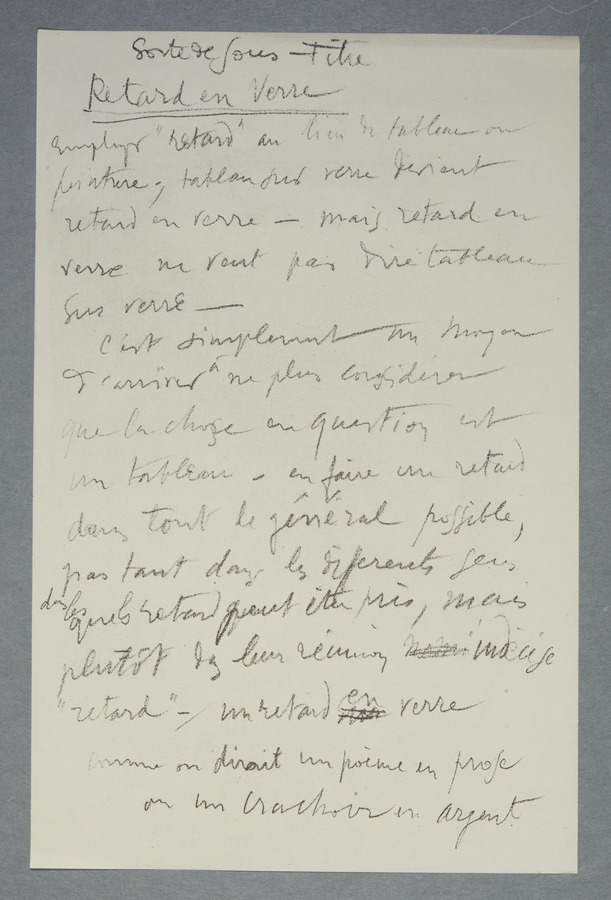 Sorte de Sous-Titre
Retard en Verre
Employer "retard" au lieu de tableau ou
peinture; tableau sur verre devient
retard en verre — mais retard en
verre ne veut pas dire tableau
sur verre —
C'est simplement un moyen
d'arriver à ne plus considérer
que la chose en question est
un tableau - en faire un retard
dans tout le général possible,
pas tant dans les différents sens
dans lesquels retard peut être pris, mais
plutôt dans leur réunion indécise
"retard" - / un retard en verre
comme on dirait un poème en prose
ou un crachoir en argent